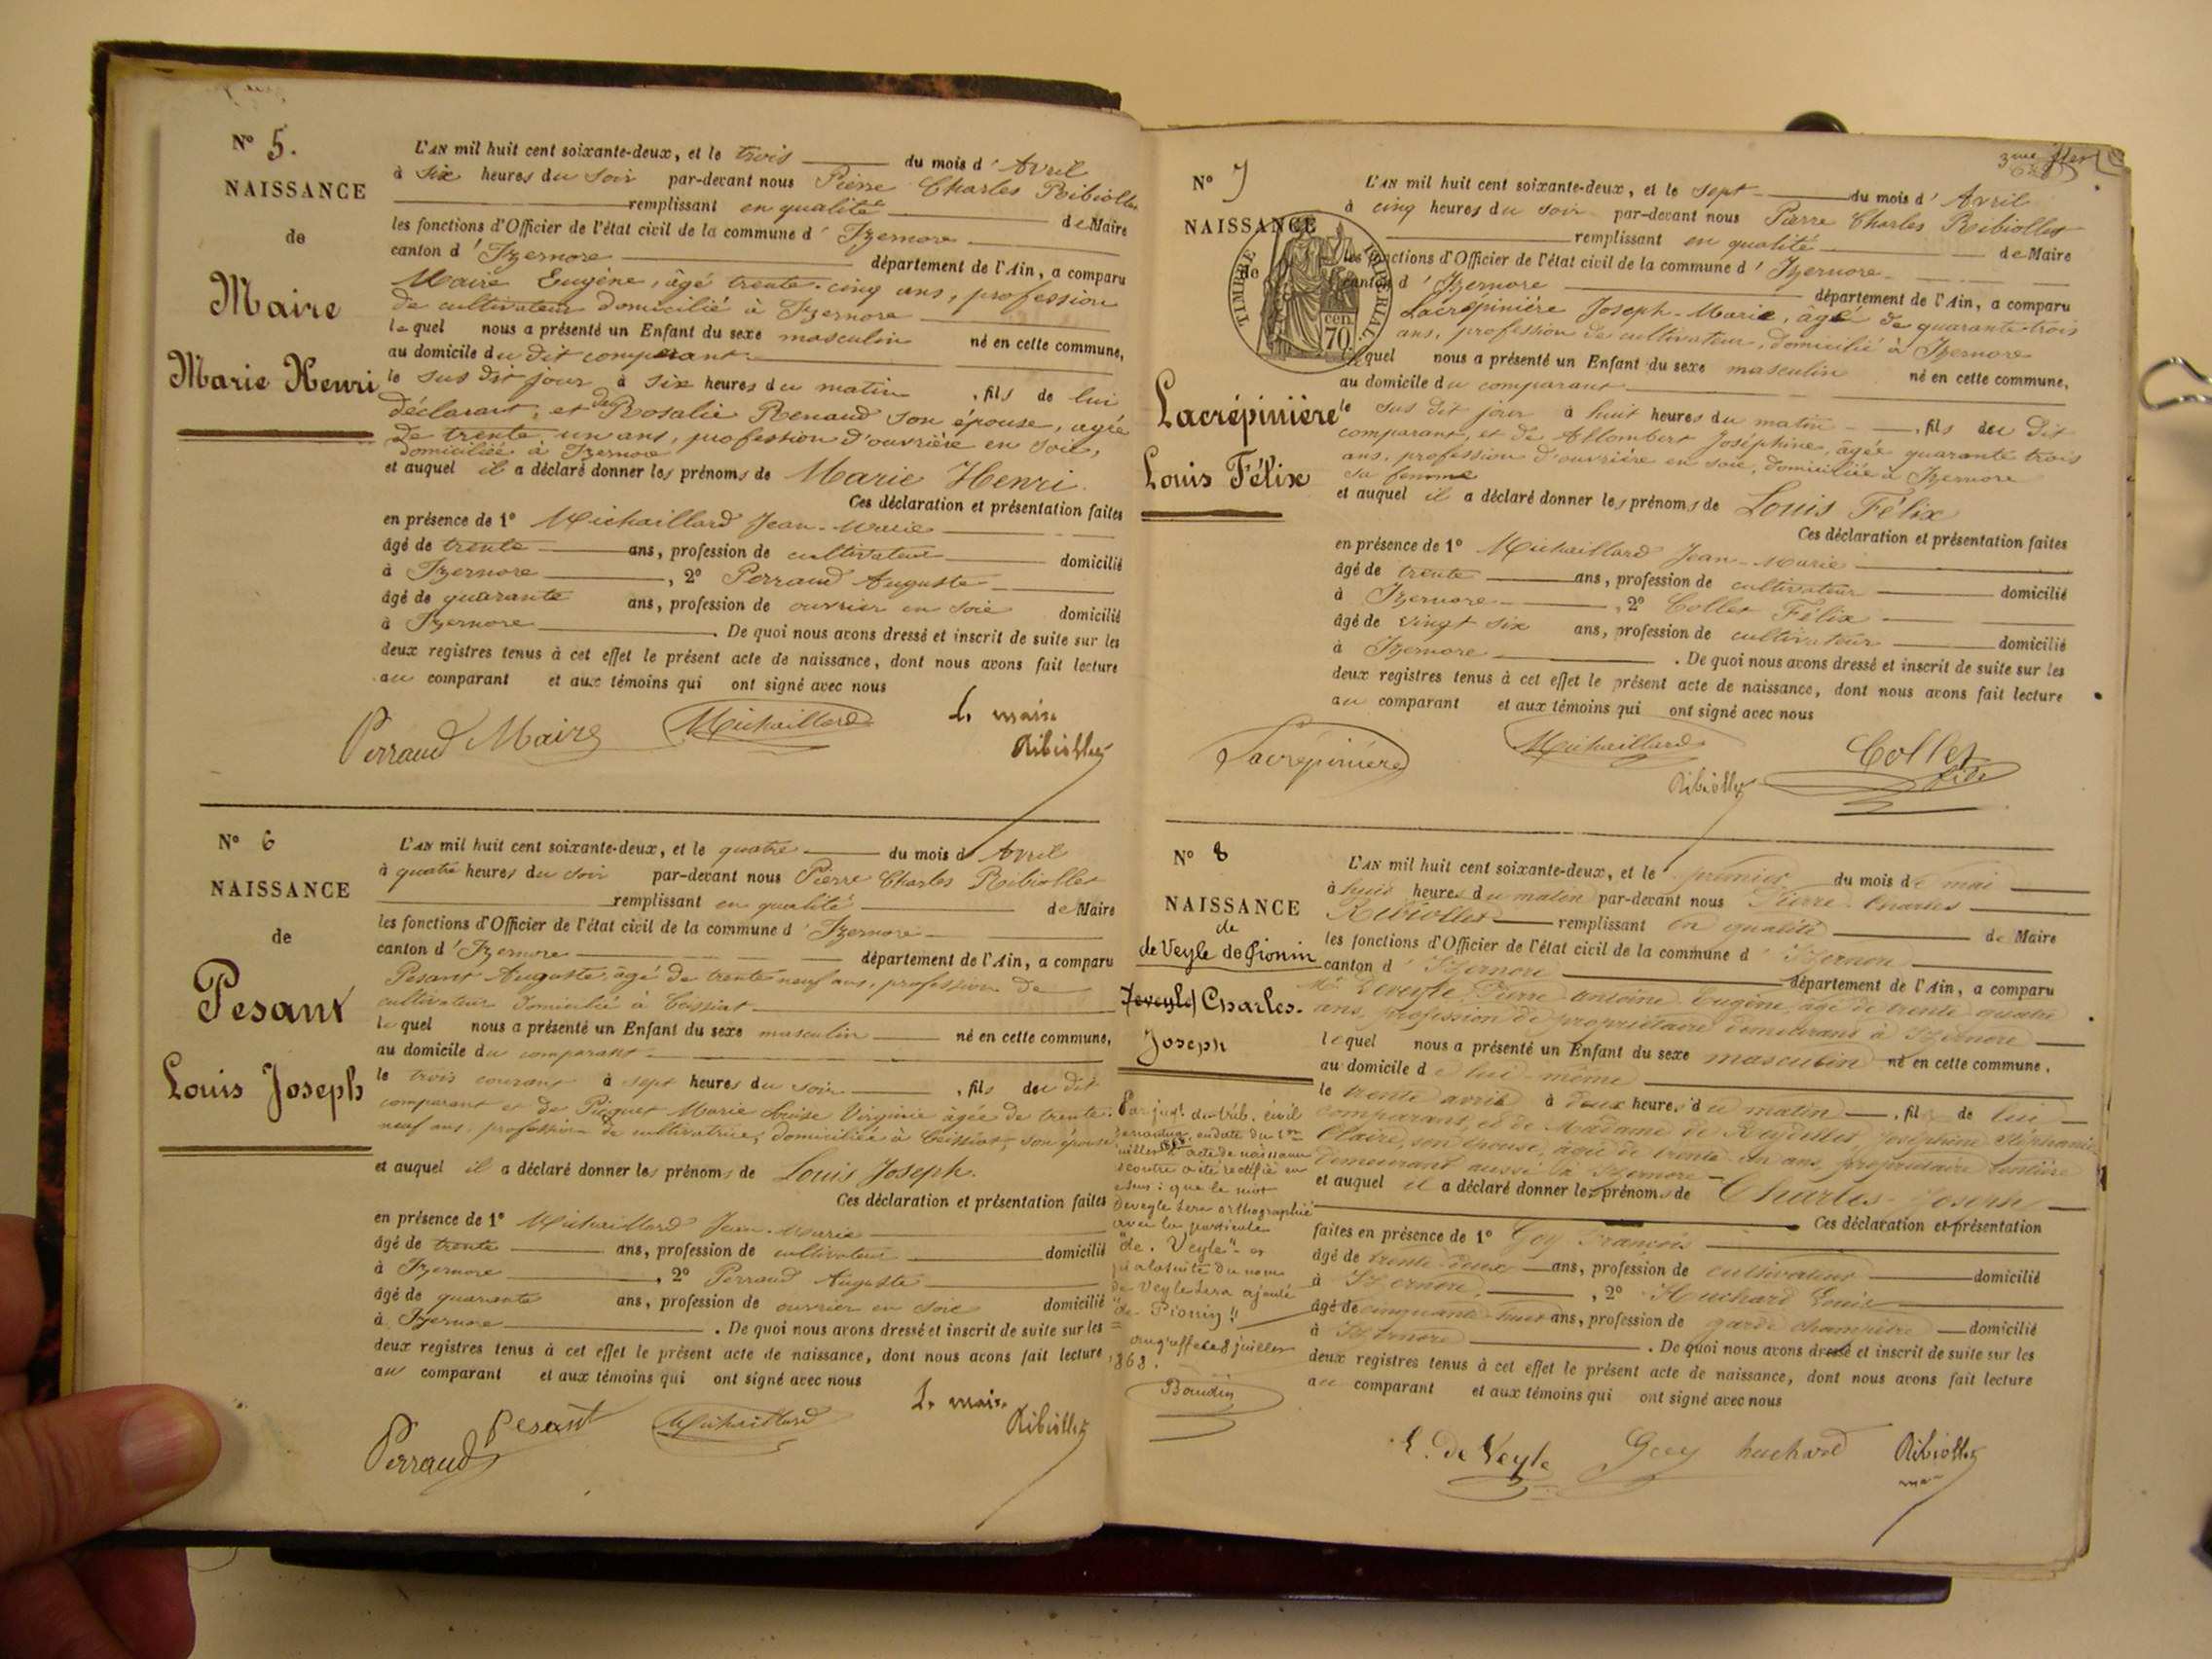 N° 5.
NAISSANCE
de
Maire
Marie Henri
L'AN mil huit cent soixante-deux, et le trois du mois d'Avril
à six heures du soir par-devant nous Pierre Charles Ribiollet
remplissant en qualité de Maire
les fonctions d'Officier de l'état civil de la commune d'Izernore
canton d'Izernore département de l'Ain, a comparu
Maire Eugène, âgé trente-cinq ans, profession
de cultivateur domicilié à Izernore
lequel nous a présenté un Enfant du sexe masculin né en cette commune,
au domicile du dit comparant
le sus dit jour à six heures du matin, fils de lui
déclarant, et de Rosalie Renaud son épouse, agée
de trente un ans, profession d'ouvrière en soie,
domiciliée à Izernore
et auquel il a déclaré donner les prénoms de Marie Henri.
Ces déclaration et présentation faites
en présence de 1° Michaillard Jean-Marie
âgé de trente ans, profession de cultivateur domicilié
à Izernore, 2° Perraud Auguste
âgé de quarante ans, profession de ouvrier en soie domicilié
à Izernore. De quoi nous avons dressé et inscrit de suite sur les
deux registres tenus à cet effet le présent acte de naissance, dont nous avons fait lecture
au comparant et aux témoins qui ont signé avec nous
Perraud Maire Michaillard Le maire
Ribiollet
N° 6
NAISSANCE
de
Pesant
Louis Joseph
L'AN mil huit cent soixante-deux, et le quatre du mois d'Avril
à quatre heures du soir par-devant nous Pierre Charles Ribiollet
remplissant en qualité de Maire
les fonctions d'Officier de l'état civil de la commune d'Izernore
canton d'Izernore département de l'Ain, a comparu
Pesant Auguste âgé de trente neuf ans, profession de
cultivateur domicilié à Ceissiat
lequel nous a présenté un Enfant du sexe masculin né en cette commune,
au domicile du comparant
le trois courant à sept heures du soir, fils du dit
comparant et de Piquet Marie Louise Virginie agée de trente
neuf ans, profession de cultivatrice, domiciliée à Ceissiat, son épouse
et auquel il a déclaré donner les prénoms de Louis Joseph.
Ces déclaration et présentation faites
en présence de 1° Michaillard Jean-Marie
âgé de trente ans, profession de cultivateur domicilié
à Izernore, 2° Perraud Auguste
âgé de quarante ans, profession de ouvrier en soie domicilié
à Izernore. De quoi nous avons dressé et inscrit de suite sur les
deux registres tenus à cet effet le présent acte de naissance, dont nous avons fait lecture
au comparant et aux témoins qui ont signé avec nous
Perraud Pesant Michaillard Le maire
Ribiollet
3me
N° 7
NAISSANCE
de
TIMBRE IMPÉRIAL
70 cen.
Lacrépinière
Louis Félix
L'AN mil huit cent soixante-deux, et le sept du mois d'Avril
à cinq heures du soir par-devant nous Pierre Charles Ribiollet
remplissant en qualité de Maire
les fonctions d'Officier de l'état civil de la commune d'Izernore
canton d'Izernore département de l'Ain, a comparu
Lacrépinière Joseph-Marie, agé de quarante-trois
ans, profession de cultivateur, domicilié à Izernore
lequel nous a présenté un Enfant du sexe masculin né en cette commune,
au domicile du comparant
le sus dit jour à huit heures du matin, fils du dit
comparant, et de Allombert Joséphine, âgée quarante trois
ans, profession d'ouvrière en soie, domiciliée à Izernore
sa femme
et auquel il a déclaré donner les prénoms de Louis Félix
Ces déclaration et présentation faites
en présence de 1° Michaillard Jean-Marie
âgé de trente ans, profession de cultivateur domicilié
à Izernore, 2° Collet Félix
âgé de vingt six ans, profession de cultivateur domicilié
à Izernore. De quoi nous avons dressé et inscrit de suite sur les
deux registres tenus à cet effet le présent acte de naissance, dont nous avons fait lecture
au comparant et aux témoins qui ont signé avec nous
Lacrépinière Michaillard Collet
Ribiollet
N° 8
NAISSANCE
de
de Veyle de Pionin
Deveyle Charles.
Joseph
Par jugt. du trib. civil
en date du 1er
juillet 1868 l'acte de naissance
ci contre a été rectifié en
ce sens: que le mot
Deveyle sera orthographié
avec la particule
"de. Veyle" et
qu'à la suite du nom
de Veyle sera ajouté
"de Pionin"
au greffe le 8 juillet
1868.
Baudin
L'AN mil huit cent soixante-deux, et le premier du mois de mai
à huit heures du matin par-devant nous Pierre-Charles
Ribiollet remplissant en qualité de Maire
les fonctions d'Officier de l'état civil de la commune d'Izernore
canton d'Izernore département de l'Ain, a comparu
Mr Deveyle Pierre Antoine Eugène, agé de trente quatre
ans, profession de propriétaire demeurant à Izernore
lequel nous a présenté un Enfant du sexe masculin né en cette commune,
au domicile de lui-même
le trente avril à deux heures du matin, fils de lui
comparant, et de Madame de Reydellet Joséphine Stéphanie
Claire, son épouse, agée de trente un ans, propriétaire rentière
demeurant aussi à Izernore
et auquel il a déclaré donner les prénoms de Charles-Joseph
Ces déclaration et présentation
faites en présence de 1° Goy François
âgé de trente-deux ans, profession de cultivateur domicilié
à Izernore, 2° Huchard Louis
âgé de cinquante-huit ans, profession de garde champêtre domicilié
à Izernore. De quoi nous avons dressé et inscrit de suite sur les
deux registres tenus à cet effet le présent acte de naissance, dont nous avons fait lecture
au comparant et aux témoins qui ont signé avec nous
E. de Veyle Goy huchard Ribiollet